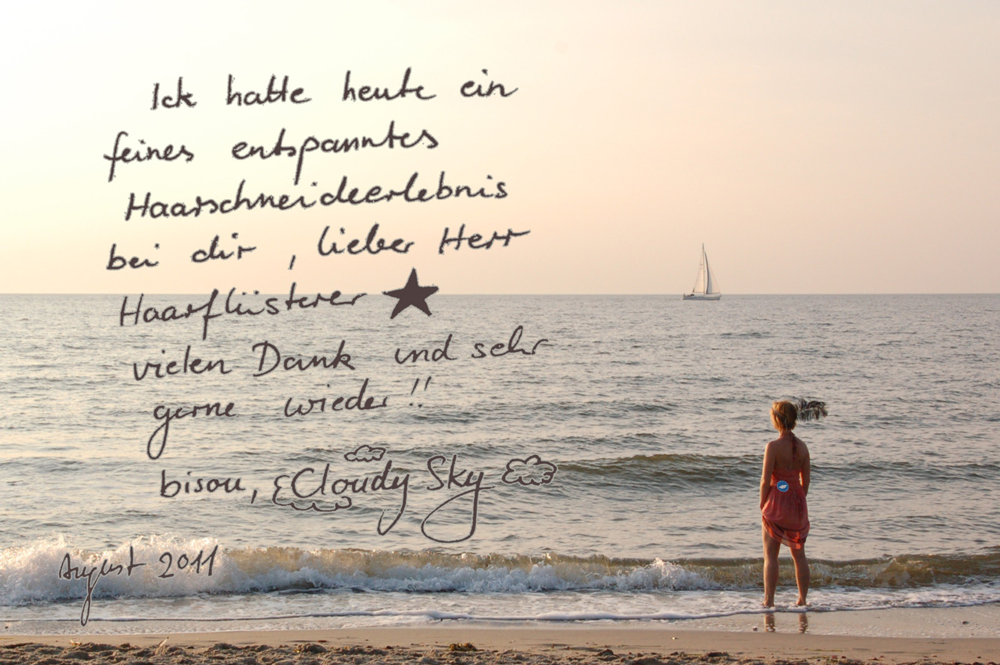 Ick hatte heute ein
feines entspanntes
Haarschneideerlebnis
bei dir, lieber Herr
Haarflüsterer ★
vielen Dank und sehr
gerne wieder!!
bisou, Cloudy Sky
August 2011